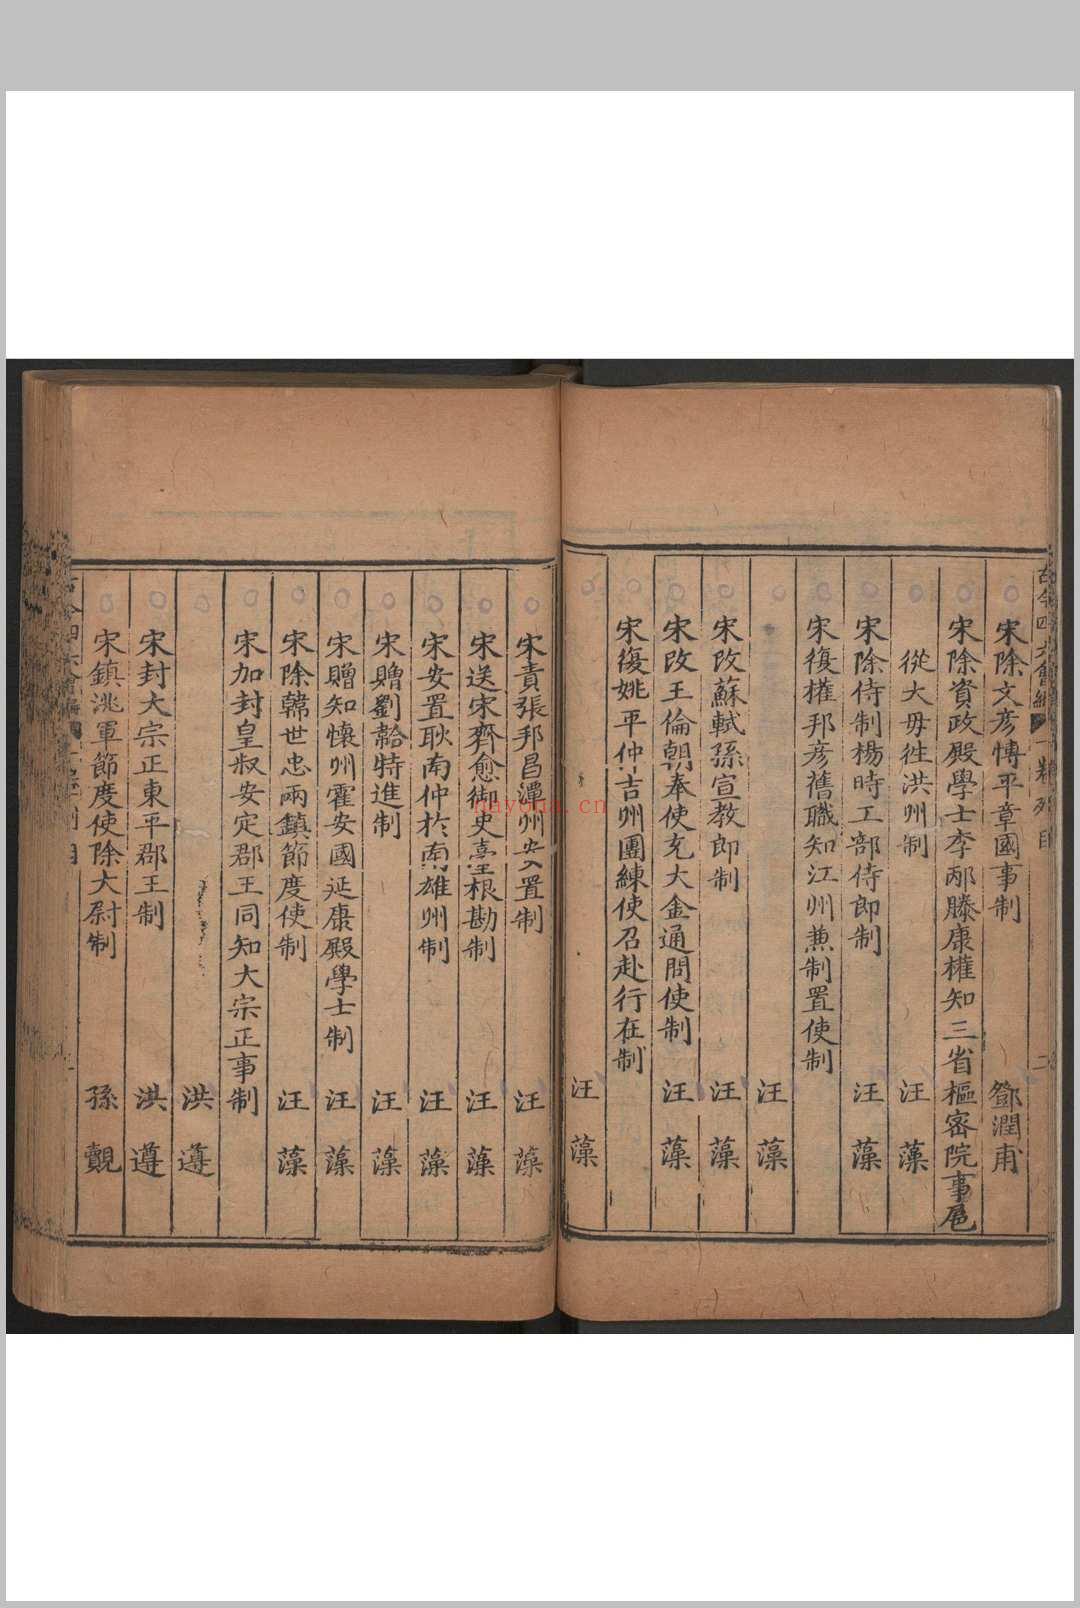 古今四六會編
宋除文彥博平章國事制 鄧潤甫
宋除資政殿學士李邴滕康權知三省樞密院事扈
從大母徃洪州制 汪藻
宋除侍制楊時工部侍郎制 汪藻
宋復權邦彥舊職知江州兼制置使制
汪藻
宋改蘇軾孫宣教郎制 汪藻
宋改王倫朝奉使充大金通問使制 汪藻
宋復姚平仲吉州團練使召赴行在制
汪藻
宋責張邦昌潭州安置制 汪藻
宋送宋齊愈御史臺根勘制 汪藻
宋安置耿南仲於南雄州制 汪藻
宋贈劉韐特進制 汪藻
宋贈知懷州霍安國延康殿學士制 汪藻
宋除韓世忠兩鎮節度使制 汪藻
宋加封皇叔安定郡王同知大宗正事制
洪遵
宋封大宗正東平郡王制 洪遵
宋鎮洮軍節度使除大尉制 孫覿
nayona.cn